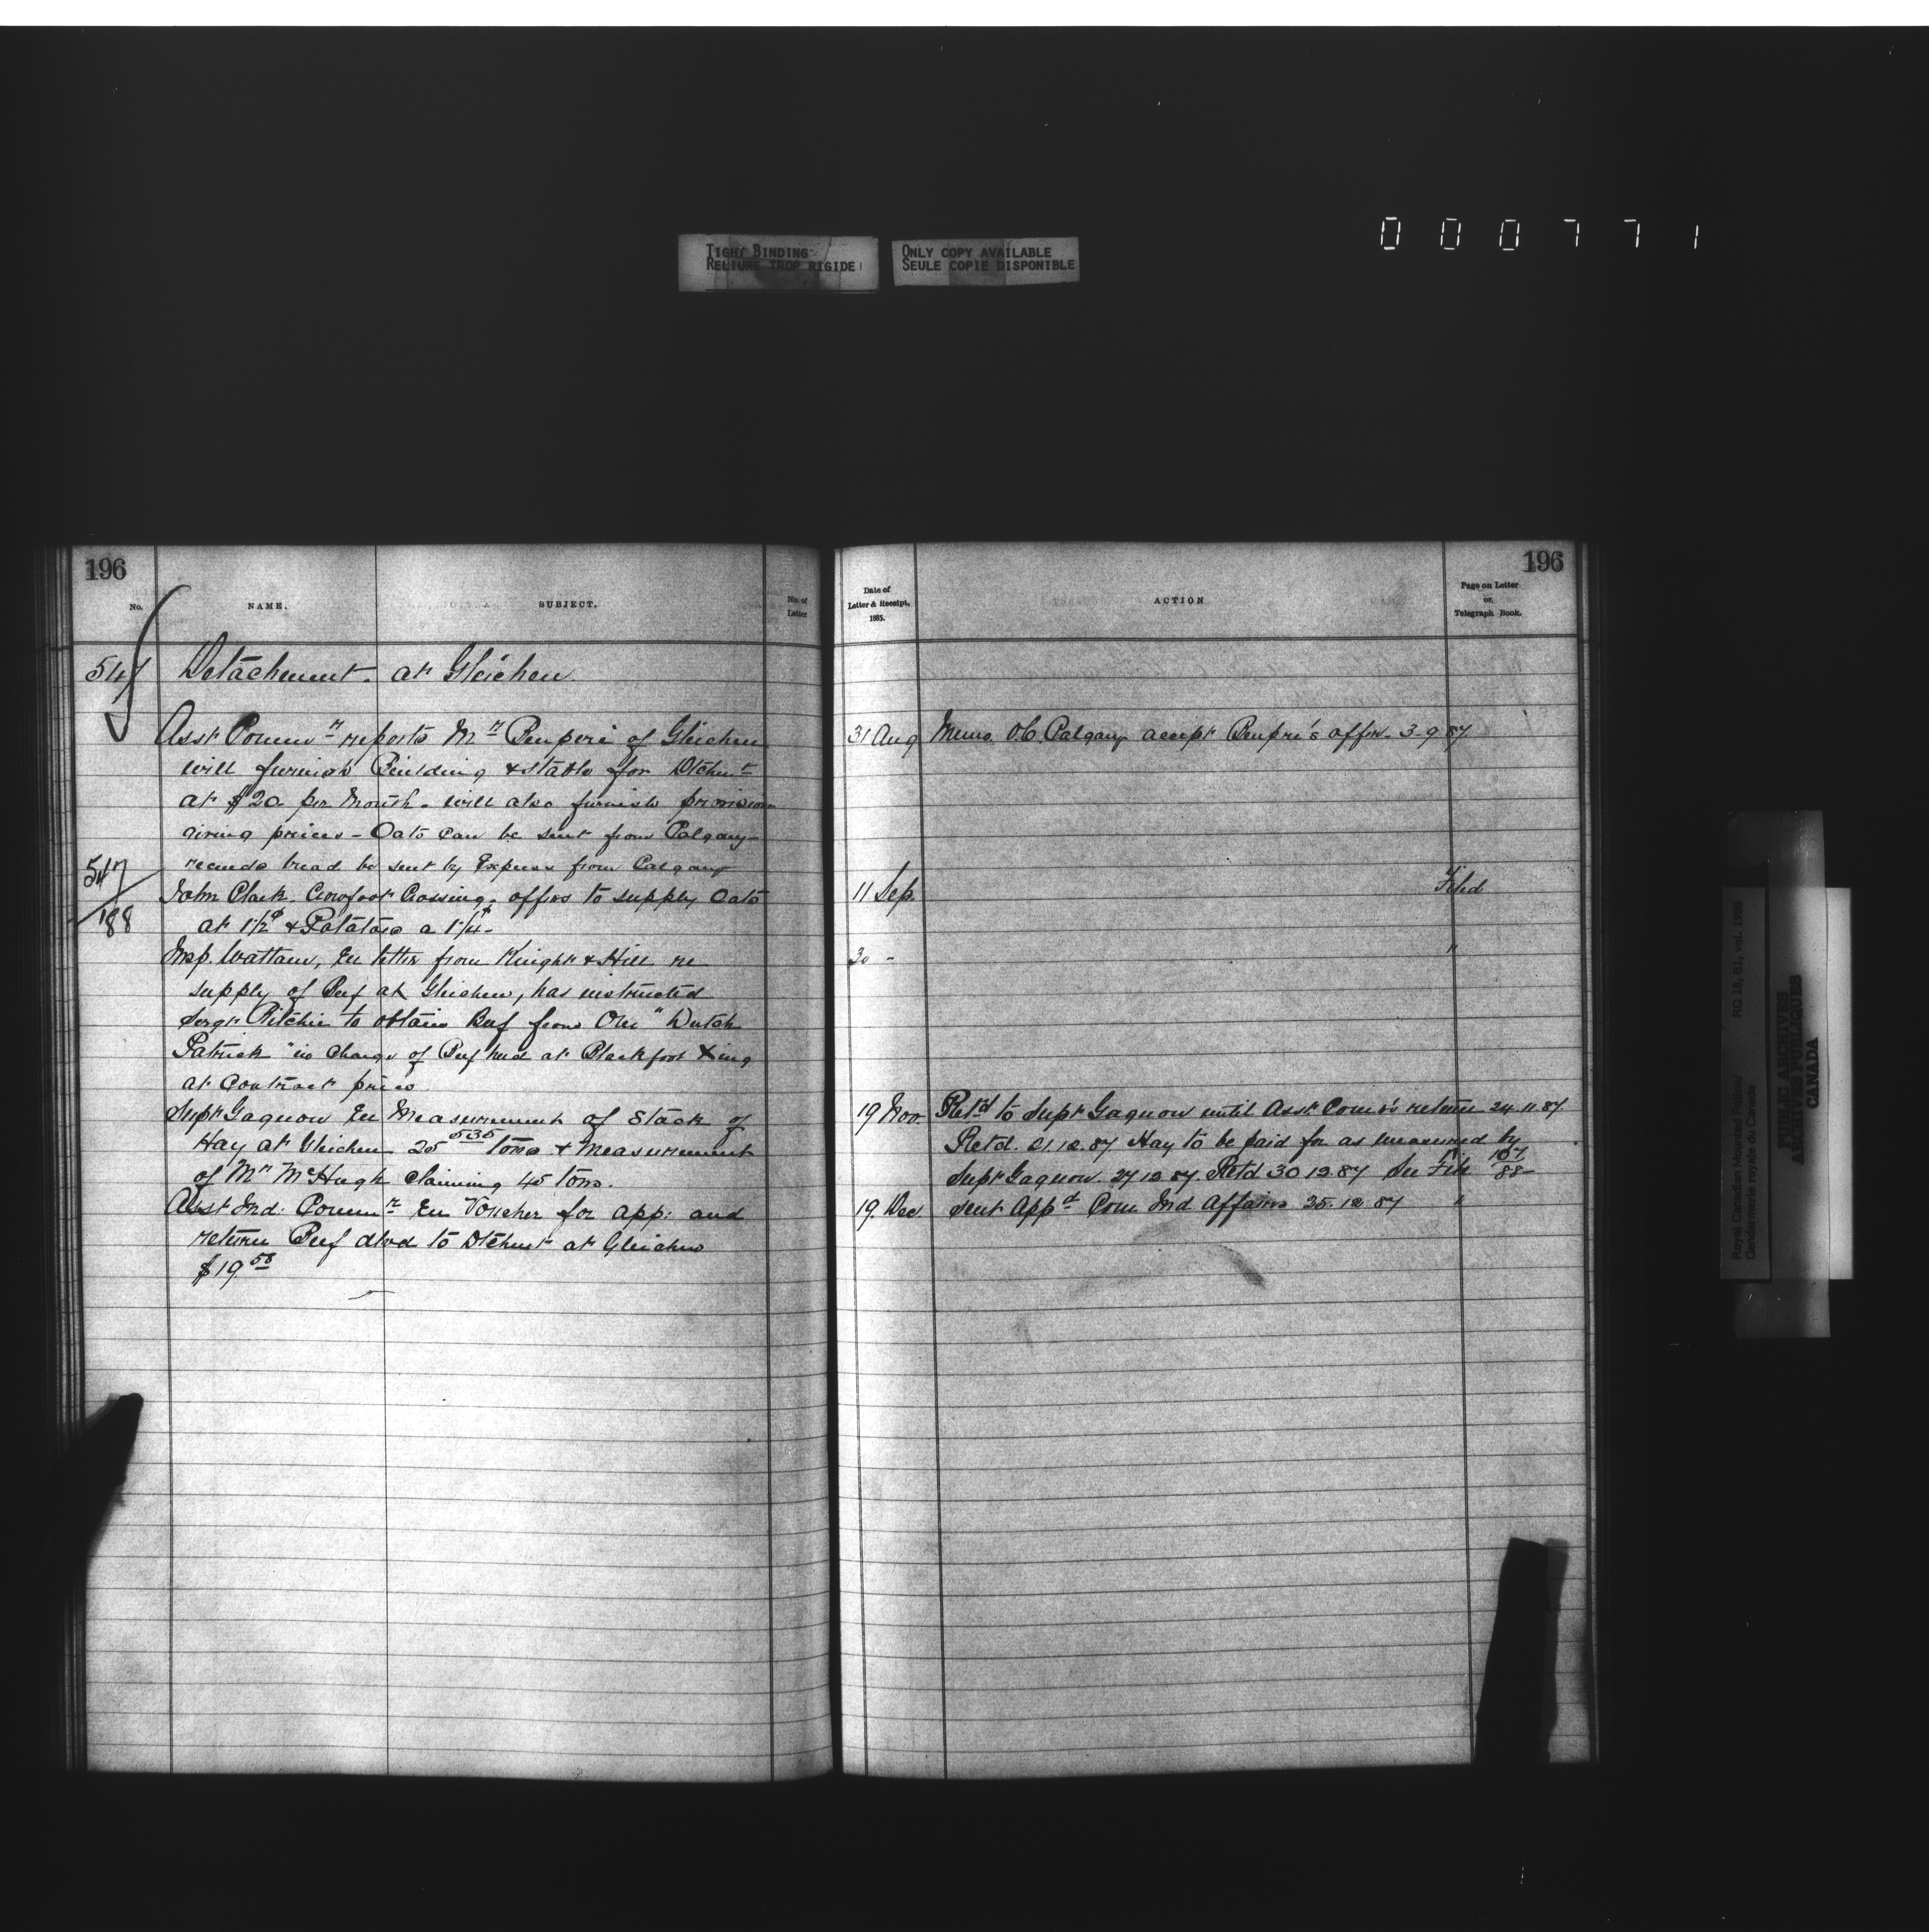 000771
TIGHT BINDING
RELIURE TROP RIGIDE
ONLY COPY AVAILABLE
SEULE COPIE DISPONIBLE
196
No.
NAME.
SUBJECT.
No. of Letter
547 Detachment. at Gleichen.
Asst Commr reports Mr Beupré of Gleichen
will furnish Building & stable for Dtchmt
at $20 per Month. will also furnish provisions
giving prices - Oats can be sent from Calgary -
recmds bread be sent by Express from Calgary
547/188
John Clark. Crowfoot Crossing. offers to supply Oats
at 1½¢ & Potatoes a 1¼¢ -
Insp. Wattam, En letter from Knight & Hill re
supply of Beef at Gleichen, has instructed
Sergt Ritchie to obtain Beef from One "Dutch
Patrick" in charge of Beef herd at Blackfoot Xing
at Contract price.
Supt Gagnon En Measurement of Stack of
Hay at Gleichen 25 535 tons & measurement
of Mr McHugh claiming 45 tons.
Asst Ind: Commr En Voucher for app: and
return Beef dlvd to Dtchmt at Gleichen
$19 58
196
Date of Letter & Receipt, 1885.
ACTION
Page on Letter or Telegraph Book.
31 Aug Memo. O.C. Calgary accept Beupré's offer. 3-9 87
11 Sep. Filed
30 - "
19 Nov. Retd to Supt Gagnon until Asst Comr's return 24.11.87
Retd. 21.12.87 Hay to be paid for as measured by
Supt Gagnon. 27 12 87. Retd 30 12.87 See File 107/88
19. Dec. Sent Appd Com Ind Affairs 25.12 87 "
Royal Canadian Mounted Police/
Gendarmerie royale du Canada
RG 18, B1, vol. 1988
PUBLIC ARCHIVES
ARCHIVES PUBLIQUES
CANADA